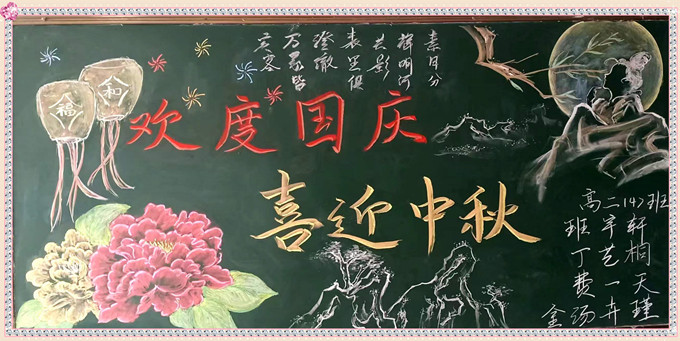 素月分
辉明河
共影
表里俱
澄澈
万象皆
宾客
和
福
欢度国庆
喜迎中秋
高二(4)班
班宇轩
丁艺桐
费一天
金汤卉瑾